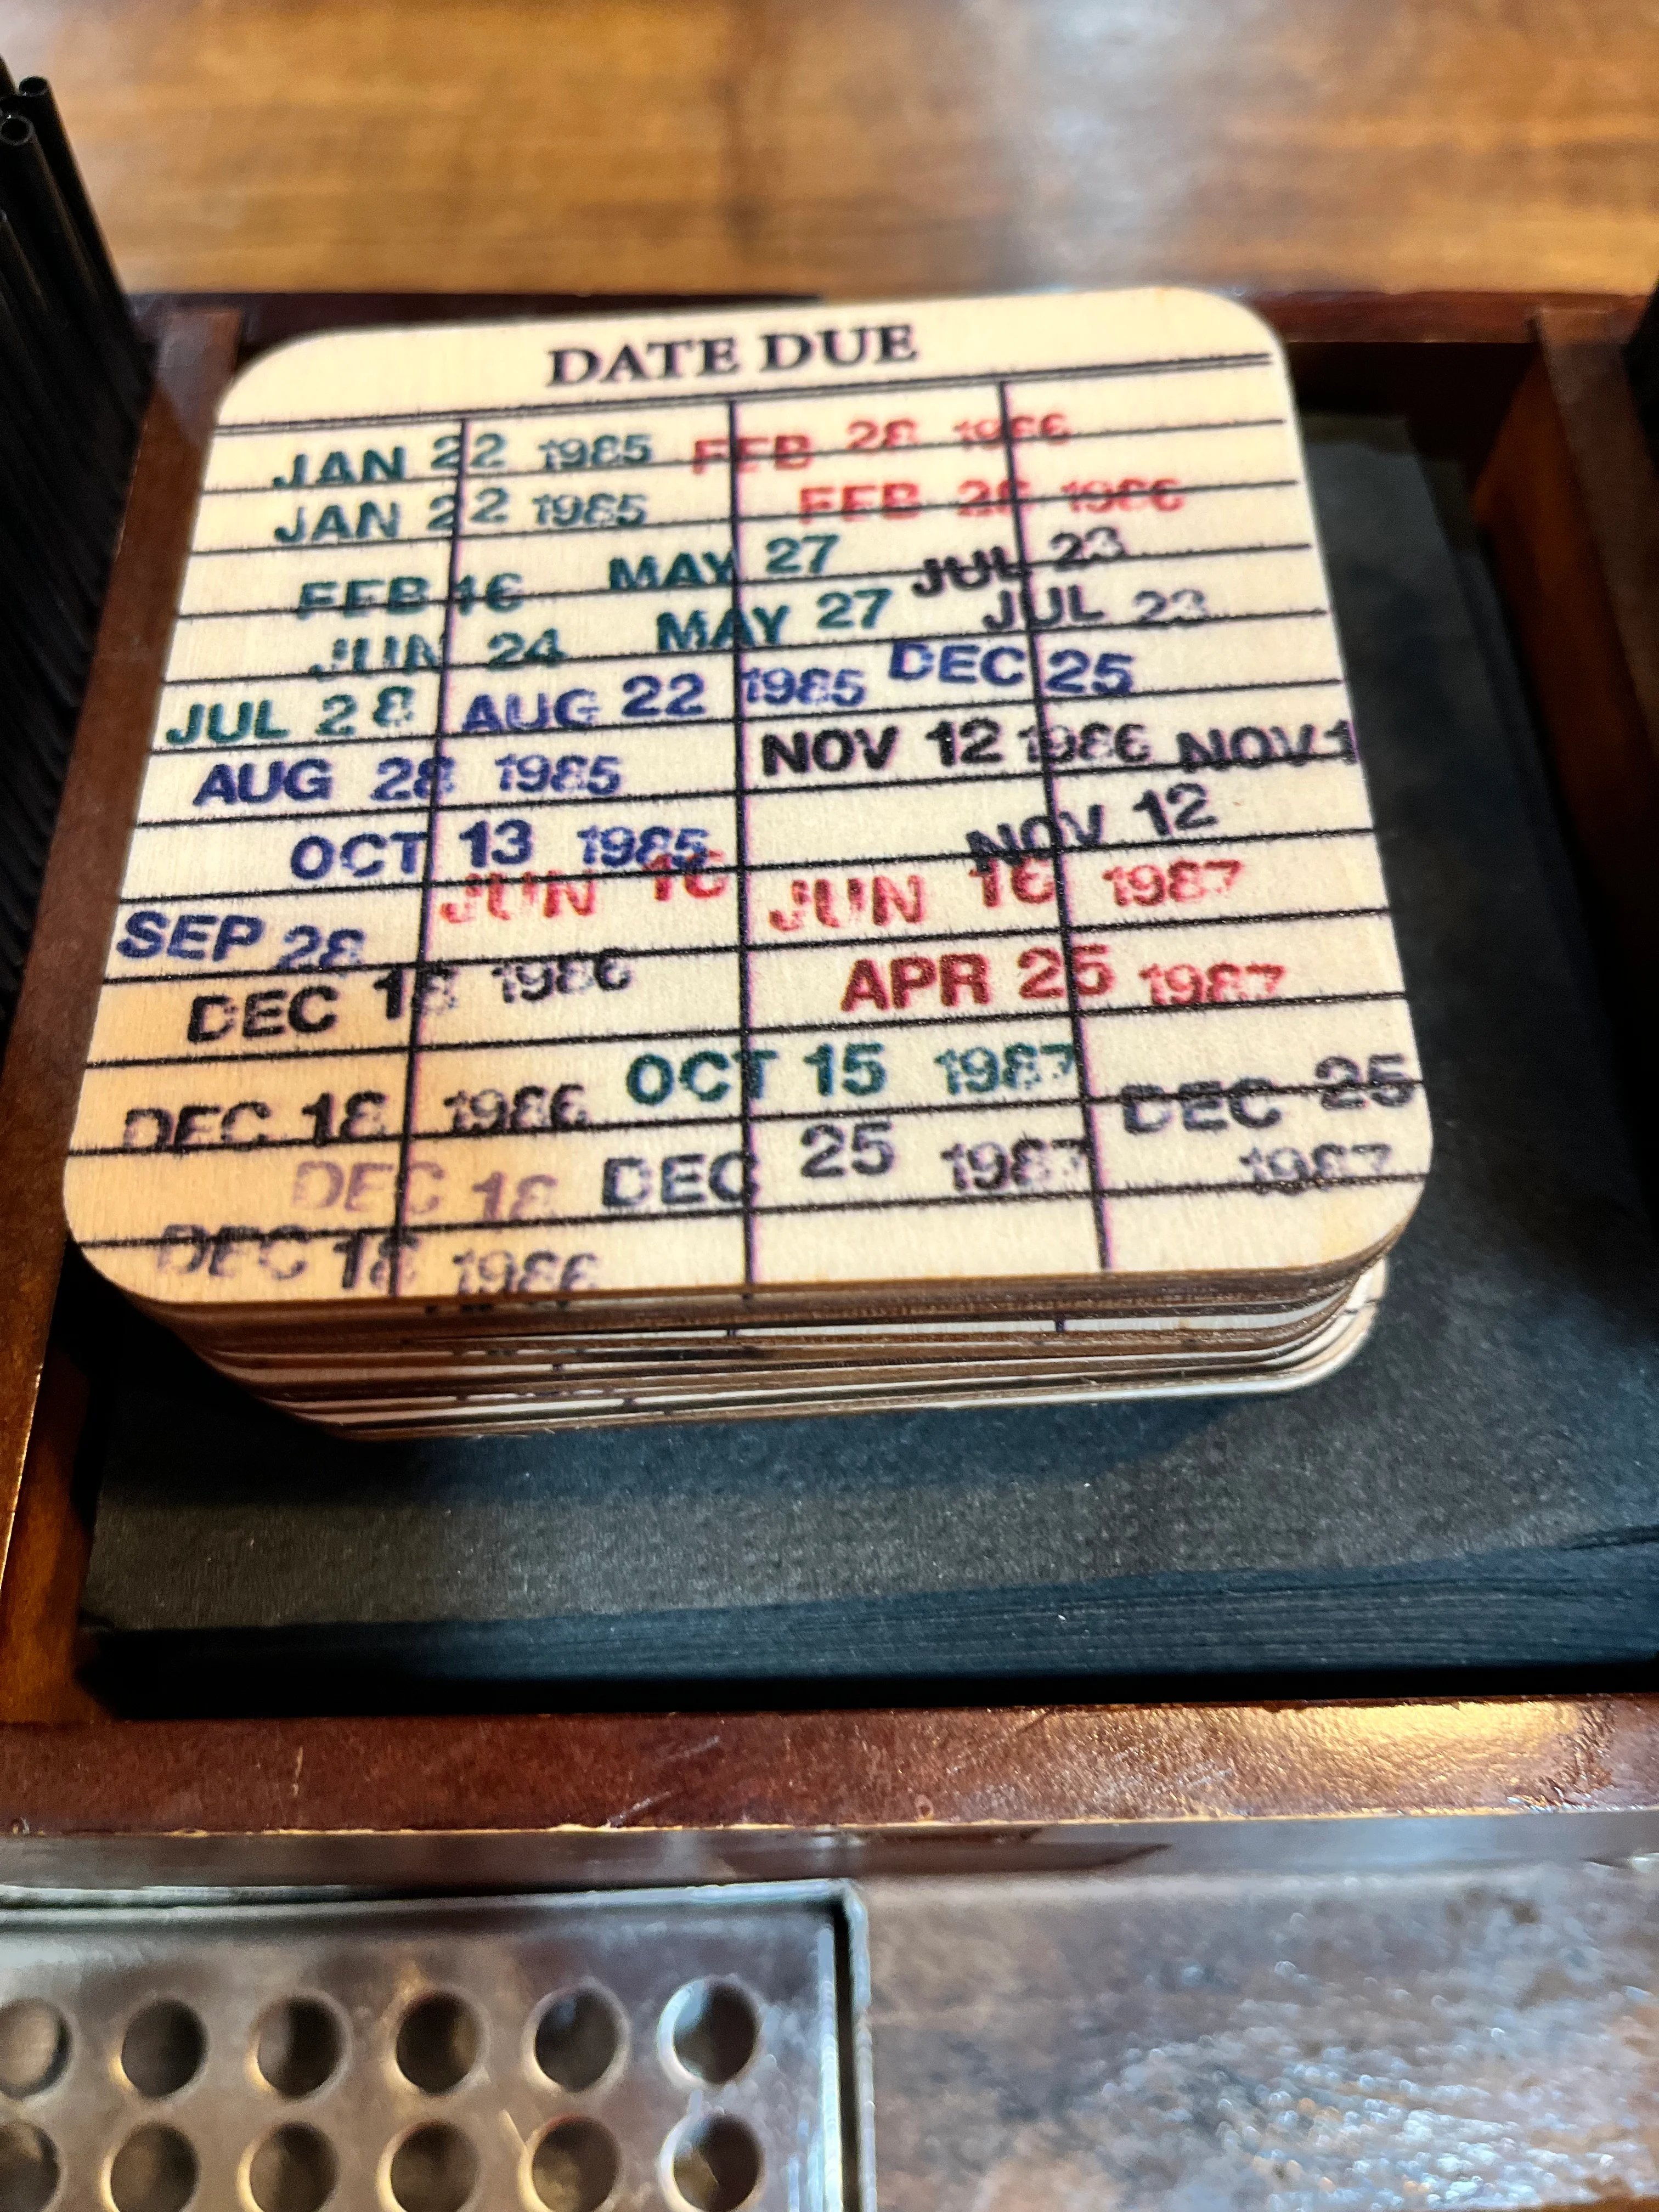 DATE DUE
JAN 22 1985 FEB 28 1986
JAN 22 1985 FEB 28 1986
FEB 16 MAY 27 JUL 23
JUN 24 MAY 27 JUL 23
JUL 28 AUG 22 1985 DEC 25
AUG 28 1985 NOV 12 1986 NOV 1
OCT 13 1985 NOV 12
JUN 16 JUN 16 1987
SEP 28
DEC 18 1986 APR 25 1987
OCT 15 1987
DEC 18 1986 DEC 25
DEC 18 DEC 25 1987 1987
DEC 18 1986